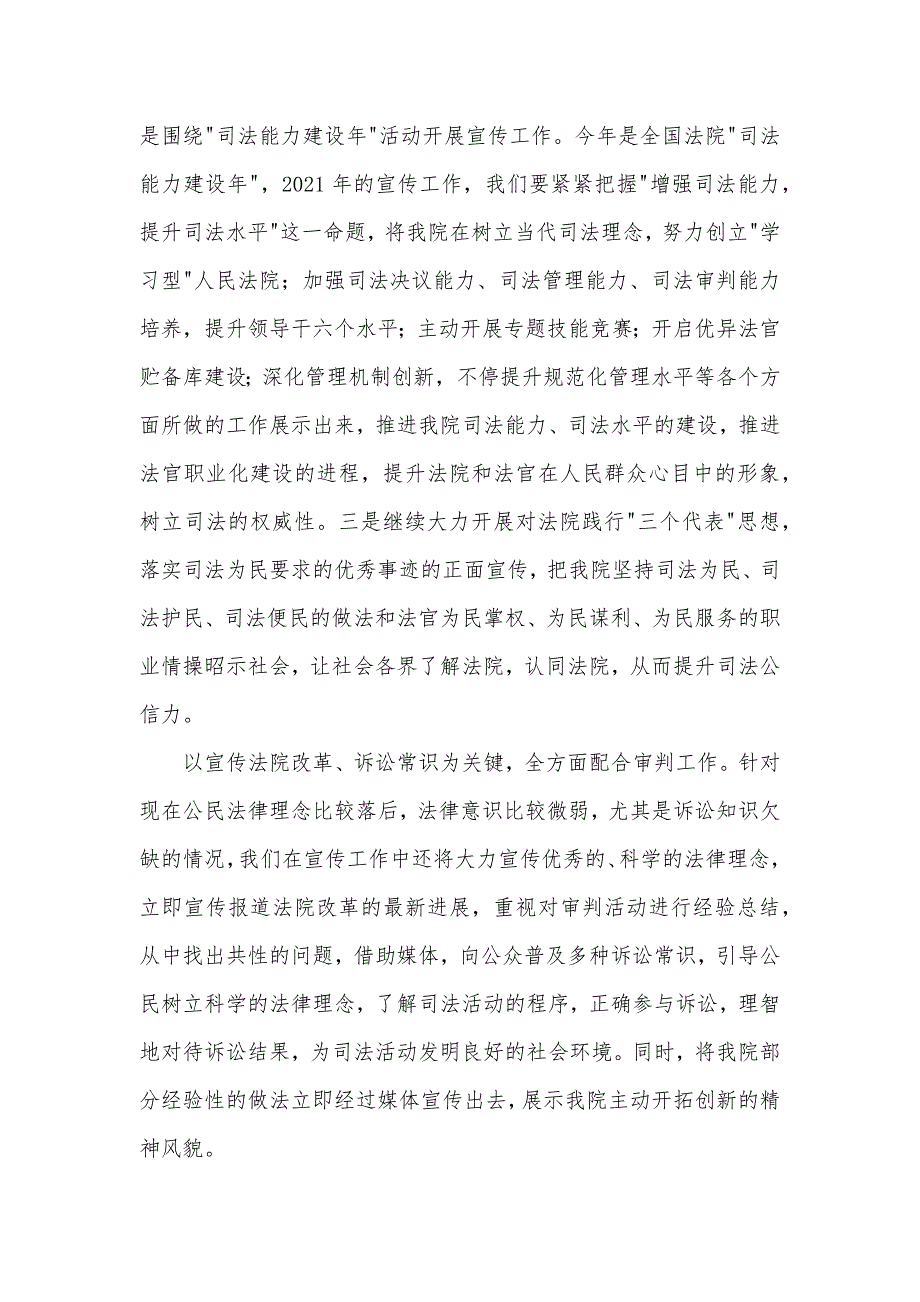 是围绕"司法能力建设年"活动开展宣传工作。今年是全国法院"司法
能力建设年"，2021 年的宣传工作，我们要紧紧把握"增强司法能力，
提升司法水平"这一命题，将我院在树立当代司法理念，努力创立"学
习型"人民法院；加强司法决议能力、司法管理能力、司法审判能力
培养，提升领导干六个水平；主动开展专题技能竞赛；开启优异法官
贮备库建设；深化管理机制创新，不停提升规范化管理水平等各个方
面所做的工作展示出来，推进我院司法能力、司法水平的建设，推进
法官职业化建设的进程，提升法院和法官在人民群众心目中的形象，
树立司法的权威性。三是继续大力开展对法院践行"三个代表"思想，
落实司法为民要求的优秀事迹的正面宣传，把我院坚持司法为民、司
法护民、司法便民的做法和法官为民掌权、为民谋利、为民服务的职
业情操昭示社会，让社会各界了解法院，认同法院，从而提升司法公
信力。
以宣传法院改革、诉讼常识为关键，全方面配合审判工作。针对
现在公民法律理念比较落后，法律意识比较微弱，尤其是诉讼知识欠
缺的情况，我们在宣传工作中还将大力宣传优秀的、科学的法律理念，
立即宣传报道法院改革的最新进展，重视对审判活动进行经验总结，
从中找出共性的问题，借助媒体，向公众普及多种诉讼常识，引导公
民树立科学的法律理念，了解司法活动的程序，正确参与诉讼，理智
地对待诉讼结果，为司法活动发明良好的社会环境。同时，将我院部
分经验性的做法立即经过媒体宣传出去，展示我院主动开拓创新的精
神风貌。